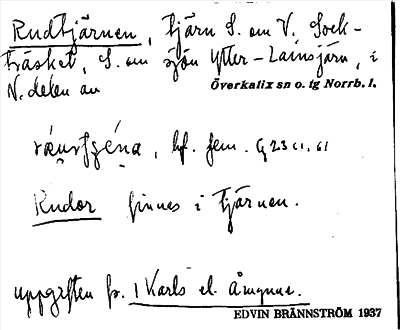 Rudtjärnen, tjärn S. om V. Sock-
träsket, S. om sjön Ytter-Lainsjärn, i
N. delen av Överkalix sn o. tg Norrb. l.
bf. fem.
Rudor finnes i tjärnen.
uppgiften fr. 1 Karls el. Åmynas.
EDVIN BRÄNNSTRÖM 1937